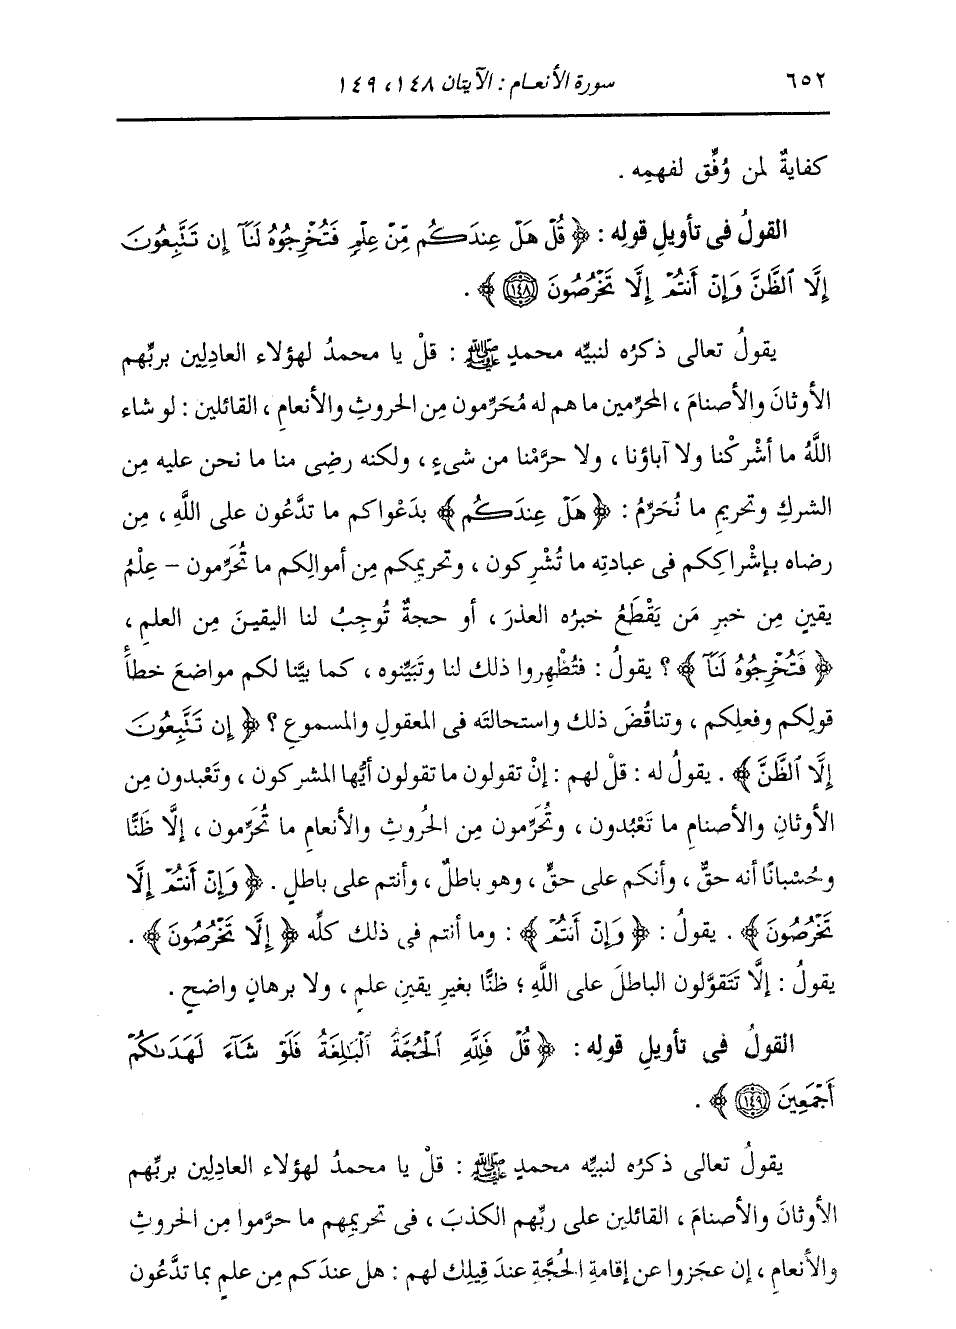 ٦٥٢ سورة الأنعام : الآيتان ١٤٨، ١٤٩
كفايةٌ لمن وُفِّق لفهمِه .
القولُ فى تأويلِ قولِه : ﴿ قُلْ هَلْ عِندَكُم مِّنْ عِلْمٍ فَتُخْرِجُوهُ لَنَآ إِن تَتَّبِعُونَ
إِلَّا ٱلظَّنَّ وَإِنْ أَنتُمْ إِلَّا تَخْرُصُونَ ﴿١٤٨﴾ ﴾ .
يقولُ تعالى ذكرُه لنبيِّه محمدٍ ﷺ : قلْ يا محمدُ لهؤلاء العادِلِين بربِّهم
الأوثانَ والأصنامَ ، المحرِّمين ما هم له مُحَرِّمون مِن الحروثِ والأنعامِ ، القائلين : لو شاء
اللَّهُ ما أشْركْنا ولا آباؤنا ، ولا حرَّمْنا من شىءٍ ، ولكنه رضِى منا ما نحن عليه مِن
الشركِ وتحريمِ ما نُحَرِّمُ : ﴿ هَلْ عِندَكُم ﴾ بدَعْواكم ما تدَّعُون على اللَّهِ ، مِن
رضاه بإشْراكِكم فى عبادتِه ما تُشْرِكون ، وتحريمِكم مِن أموالِكم ما تُحَرِّمون – عِلْمُ
يقينٍ مِن خبرِ مَن يَقْطَعُ خبرُه العذرَ ، أو حجةٌ تُوجِبُ لنا اليقينَ مِن العلمِ ،
﴿ فَتُخْرِجُوهُ لَنَآ ﴾ ؟ يقولُ : فتُظْهِروا ذلك لنا وتُبَيِّنوه ، كما بيَّنا لكم مواضعَ خطأَ
قولِكم وفعلِكم ، وتناقُضَ ذلك واستحالتَه فى المعقولِ والمسموعِ ؟ ﴿ إِن تَتَّبِعُونَ
إِلَّا ٱلظَّنَّ ﴾ . يقولُ له : قلْ لهم : إنْ تقولون ما تقولون أيُّها المشركون ، وتَعْبدون مِن
الأوثانِ والأصنامِ ما تَعْبُدون ، وتُحَرِّمون مِن الحُروثِ والأنعامِ ما تُحَرِّمون ، إلَّا ظَنًّا
وحُسْبانًا أنه حقٌّ ، وأنكم على حقٍّ ، وهو باطلٌ ، وأنتم على باطلٍ . ﴿ وَإِنْ أَنتُمْ إِلَّا
تَخْرُصُونَ ﴾ . يقولُ : ﴿ وَإِنْ أَنتُمْ ﴾ : وما أنتم فى ذلك كلِّه ﴿ إِلَّا تَخْرُصُونَ ﴾ .
يقولُ : إلَّا تَتَقوَّلون الباطلَ على اللَّهِ ؛ ظنًّا بغيرِ يقينِ علمٍ ، ولا برهانٍ واضحٍ .
القولُ فى تأويلِ قولِه : ﴿ قُلْ فَلِلَّهِ ٱلْحُجَّةُ ٱلْبَٰلِغَةُ فَلَوْ شَآءَ لَهَدَىٰكُمْ
أَجْمَعِينَ ﴿١٤٩﴾ ﴾ .
يقولُ تعالى ذكرُه لنبيِّه محمدٍ ﷺ : قلْ يا محمدُ لهؤلاء العادِلِين بربِّهم
الأوثانَ والأصنامَ ، القائلين على ربِّهم الكذبَ ، فى تحريمِهم ما حرَّموا مِن الحروثِ
والأنعامِ ، إن عجَزوا عن إقامةِ الحُجَّةِ عندَ قِيلِك لهم : هل عندَكم مِن علمٍ بما تدَّعُون